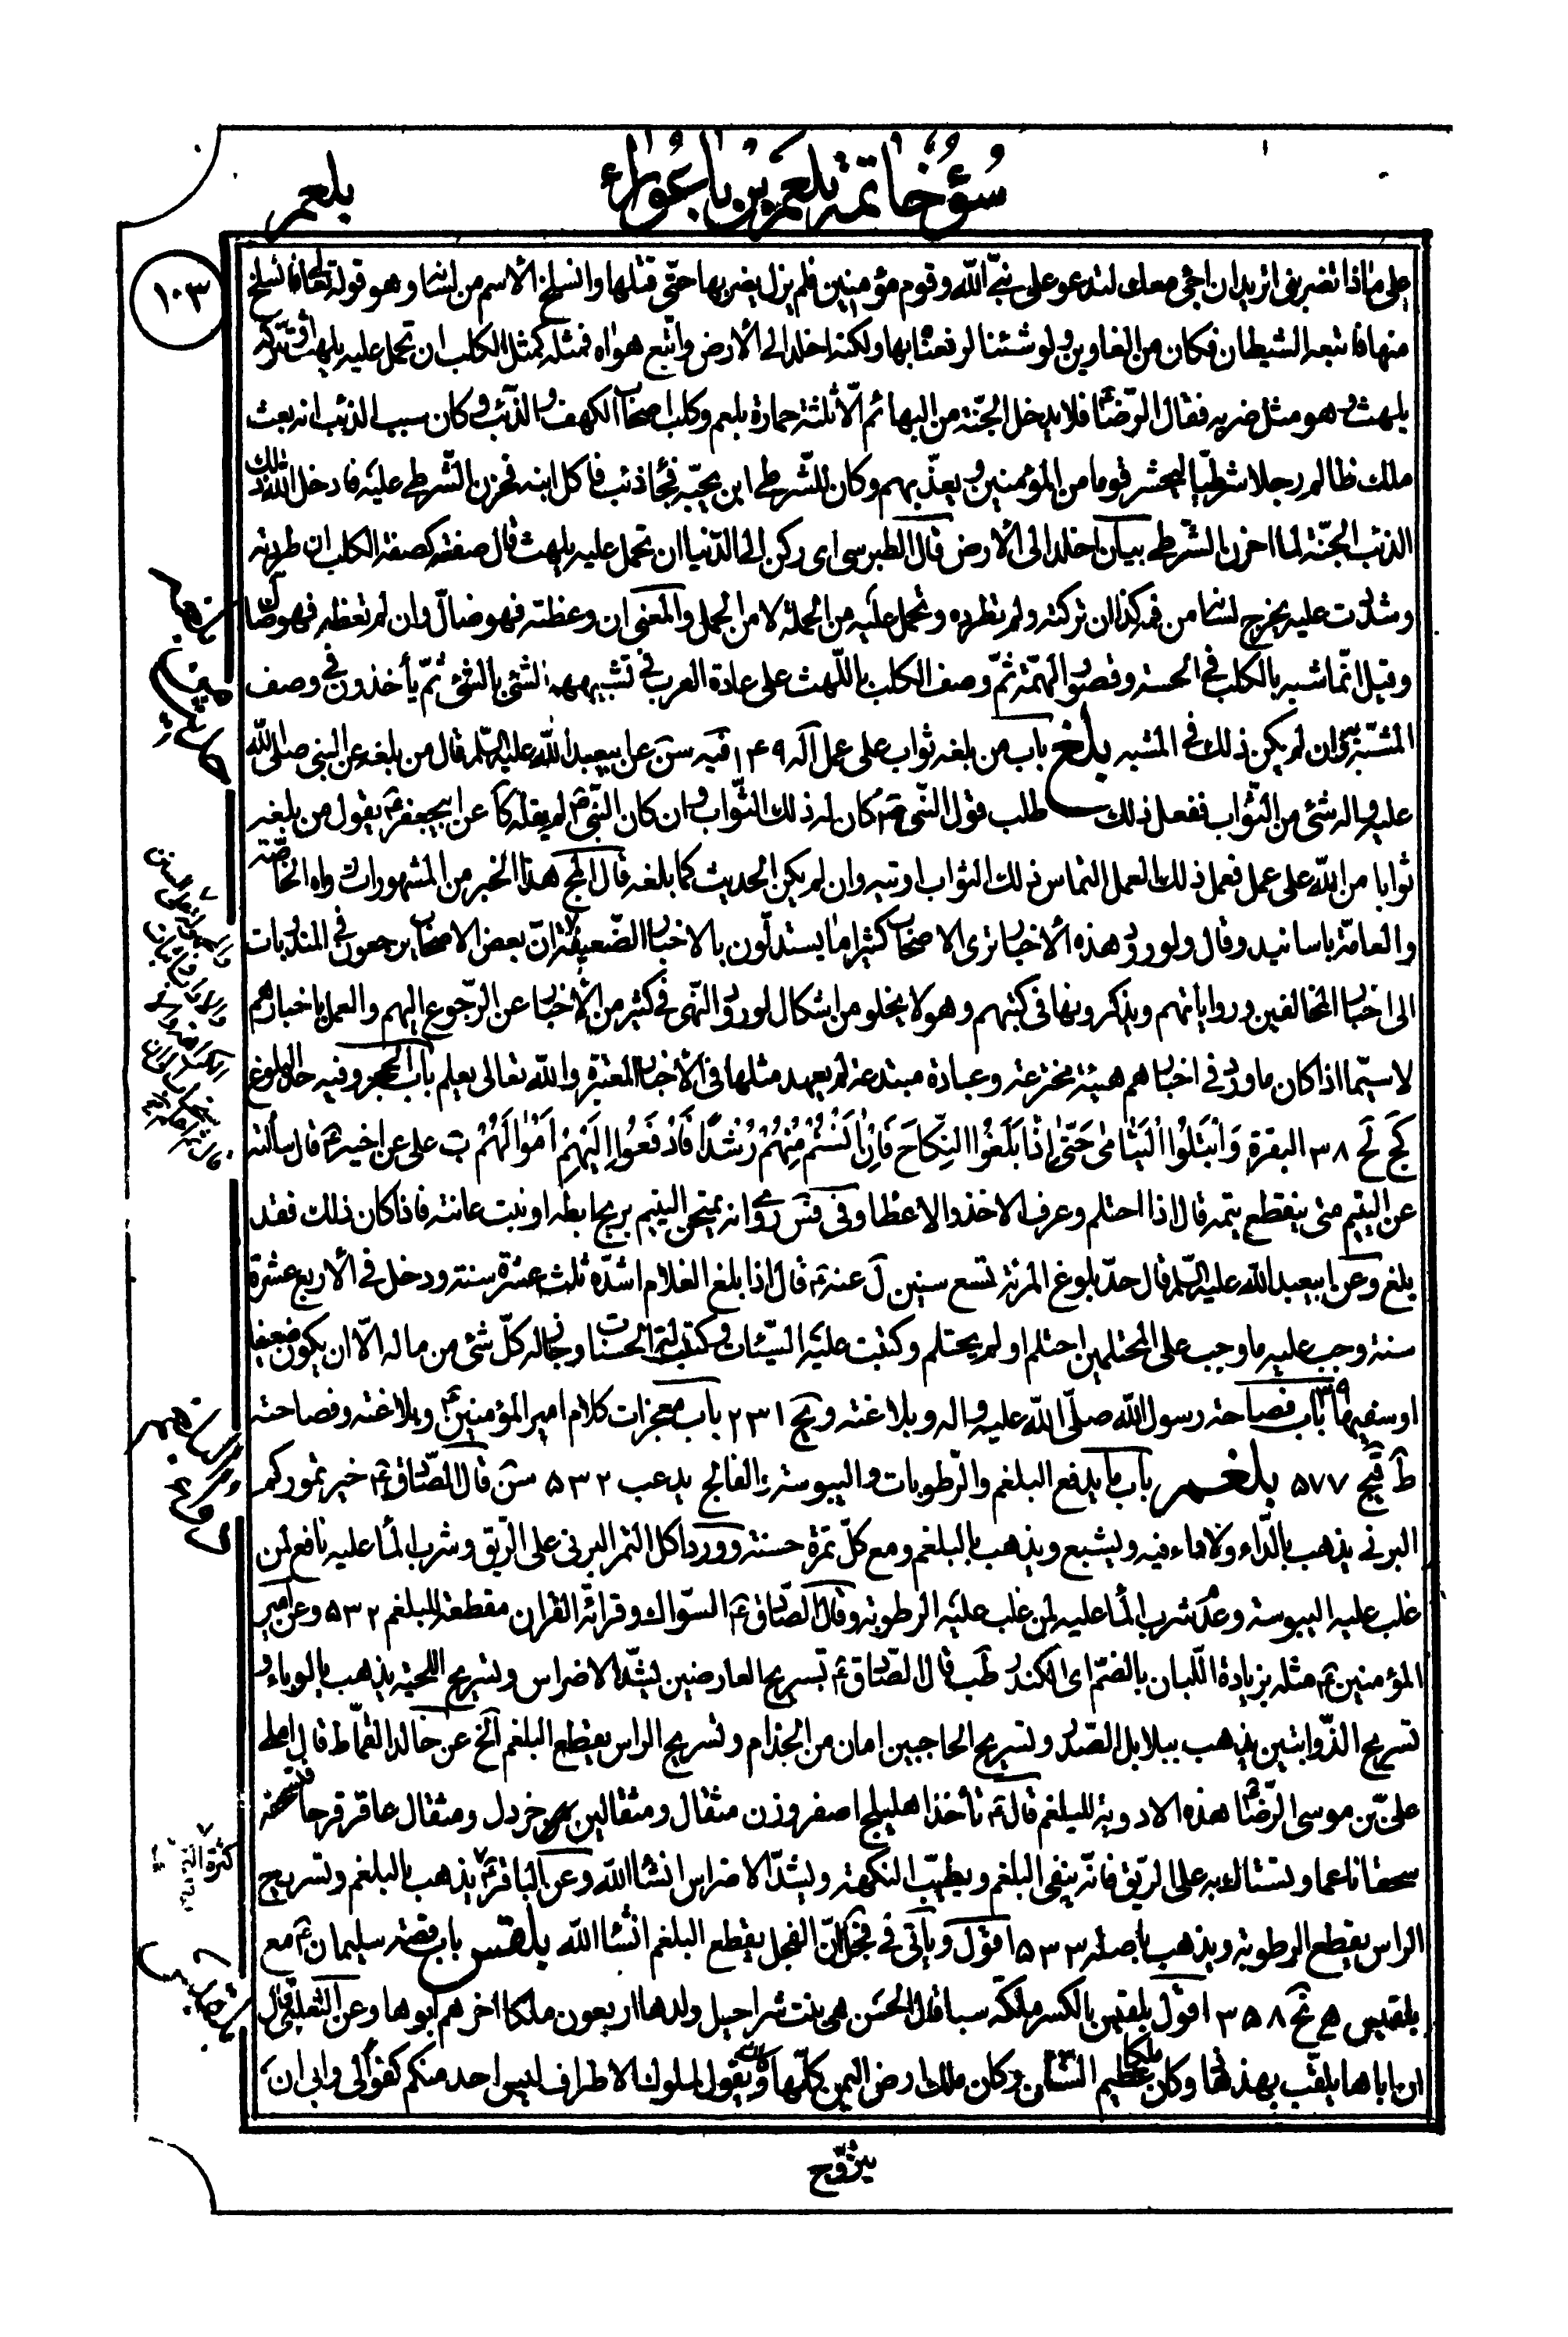 سوء خاتمة بلعم بن باعوراء
بلعم
١٠٣
على ماذا تضربني اتريد ان اجئ معك لتدعو على نبيّ الله وقوم مؤمنين فلم يزل يضربها حتّى قتلها وانسلخ الاسم من لسانه وهو قوله تعالى فانسلخ
منها فاتبعه الشيطان فكان من الغاوين ولو شئنا لرفعناه بها ولكنه اخلد الى الأرض واتّبع هواه فمثله كمثل الكلب ان تحمل عليه يلهث او تتركه
يلهث وهو مثل ضربه فقال الرّضا فلا يدخل الجنّة من البهائم الّا ثلثة حمارة بلعم وكلب اصحاب الكهف والذّئب وكان سبب الذئب انه بعث
ملك ظالم رجلا شرطيّا ليحشر قوما من المؤمنين ويعذّبهم وكان للشّرطي ابن يحبّه فجاء ذئب فاكل ابنه فحزن الشّرطي عليه فادخل الله ذلك
الذئب الجنّة لما احزن الشّرطي بيان اخلد الى الأرض قال الطبرسى اى ركن الى الدّنيا ان تحمل عليه يلهث قال صفته كصفة الكلب ان طردته
وشددت عليه يخرج لسانه من فمه كذا ان تركته ولم تطرده وتحمل عليه من الحملة لا من الحمل والمعنى ان وعظته فهو ضالّ وان لم تعظه فهو ضالّ
وقيل انّما شبه بالكلب في الخسة وقصور الهمّة ثمّ وصف الكلب باللّهث على عادة العرب في تشبيههم الشئ بالشئ ثمّ يأخذون في وصف
المشبّه به وان لم يكن ذلك في المشبه بلغ باب من بلغه ثواب على عمل آكه ١٤٩ فيه سن عن ابيعبد الله عليه السّلم قال من بلغه عن النبى صلى الله
عليه واله شئ من الثّواب ففعل ذلك طلب قول النّبي كان له ذلك الثّواب وان كان النّبيّ لم يقله كا عن ابيجعفر يقول من بلغه
ثوابا من الله على عمل فعمل ذلك العمل التماس ذلك الثواب اوتيه وان لم يكن الحديث كما بلغه قال المج هذا الخبر من المشهورات رواه الخاصّة
والعامّة باسانيد وقال ولورود هذه الأخبار ترى الاصحاب كثيرا ما يستدلّون بالاخبار الضّعيفة انّ بعض الاصحاب يرجعون في المندوبات
الى اخبار المخالفين ورواياتهم ويذكرونها فى كتبهم وهو لا يخلو من اشكال لورود النّهى فى كثير من الأخبار عن الرّجوع اليهم والعمل باخبارهم
لا سيّما اذا كان ما ورد في اخبارهم هيئة مخترعة وعبادة مبتدعة لم يعهد مثلها فى الأخبار المعتبرة والله تعالى يعلم باب الحجر وفيه حدّ البلوغ
كج لح ٣٨ البقرة وَابْتَلُوا الْيَتَامىٰ حَتّىٰ اِذَا بَلَغُوا النِّكَاحَ فَاِنْ اٰنَسْتُمْ مِنْهُمْ رُشْدًا فَادْفَعُوا اِلَيْهِمْ اَمْوَالَهُمْ ب على عن اخيه قال سألته
عن اليتيم متى ينقطع يتمه قال اذا احتلم وعرف الاخذ والاعطا وفى فس روى انه يمتحن اليتيم بريح ابطه او نبت عانته فاذا كان ذلك فقد
بلغ وعن ابيعبد الله عليه السّلم قال حدّ بلوغ المرئة تسع سنين ل عنه قال اذا بلغ الغلام اشدّه ثلث عشرة سنة ودخل في الأربع عشرة
سنة وجب عليه ما وجب على المحتلمين احتلم او لم يحتلم وكتبت عليه السّيّئات وكتبت له الحسنات وجاز له كلّ شئ من ماله الّا ان يكون ضعيفا
او سفيها باب فصاحة رسول الله صلّى الله عليه واله وبلاغته و يج ٢٣١ باب معجزات كلام امير المؤمنين وبلاغته وفصاحته
ط قيج ٥٧٧ بلغم باب ما يدفع البلغم والرّطوبات واليبوسة والفالج يد عب ٥٣٢ سن قال الصّادق خير تموركم
البرني يذهب بالدّاء ولا داء فيه ويشبع ويذهب بالبلغم ومع كلّ تمرة حسنة وورد اكل التمر البرنى على الرّيق وشرب الماء عليه نافع لمن
غلب عليه اليبوسة وعدم شرب الماء عليه لمن غلب عليه الرطوبة وقال الصّادق السّواك وقرائة القران مقطعة للبلغم ٥٣٢ وعن امير
المؤمنين مثله بزيادة اللّبان بالضمّ اى الكندر طب قال الصّادق تسريح العارضين يشدّ الاضراس وتسريح اللحية يذهب بالوباء و
تسريح الذّوابتين يذهب ببلابل الصّدر وتسريح الحاجبين امان من الجذام وتسريح الراس يقطع البلغم الخ عن خالد القمّاط قال املى
علىّ بن موسى الرضا هذه الادوية للبلغم قال تأخذ اهليلج اصفر وزن مثقال ومثقالين خردل ومثقال عاقر قرحا فتسحقه
سحقا ناعما وتستاك به على الرّيق فانّه ينفى البلغم ويطيّب النكهة ويشدّ الاضراس انشاء الله وعن الباقر يذهب بالبلغم وتسريح
الراس يقطع الرطوبة ويذهب باصله ٥٣٣ اقول ويأتى في فجل انّ الفجل يقطع البلغم انشاء الله بلقس باب قصة سليمان مع
بلقيس ه نح ٣٥٨ اقول بلقيس بالكسر ملكة سبا قال الحسن هى بنت شراحيل ولدها اربعون ملكا اخرهم ابوها وعن الثعلبى قال
ان اباها يلقب بهذ وكان ملكا عظيم الشان وكان ملك ارض اليمن كلّها ويقول لملوك الاطراف ليس احد منكم كفوا لى وابى ان
يتزوّج